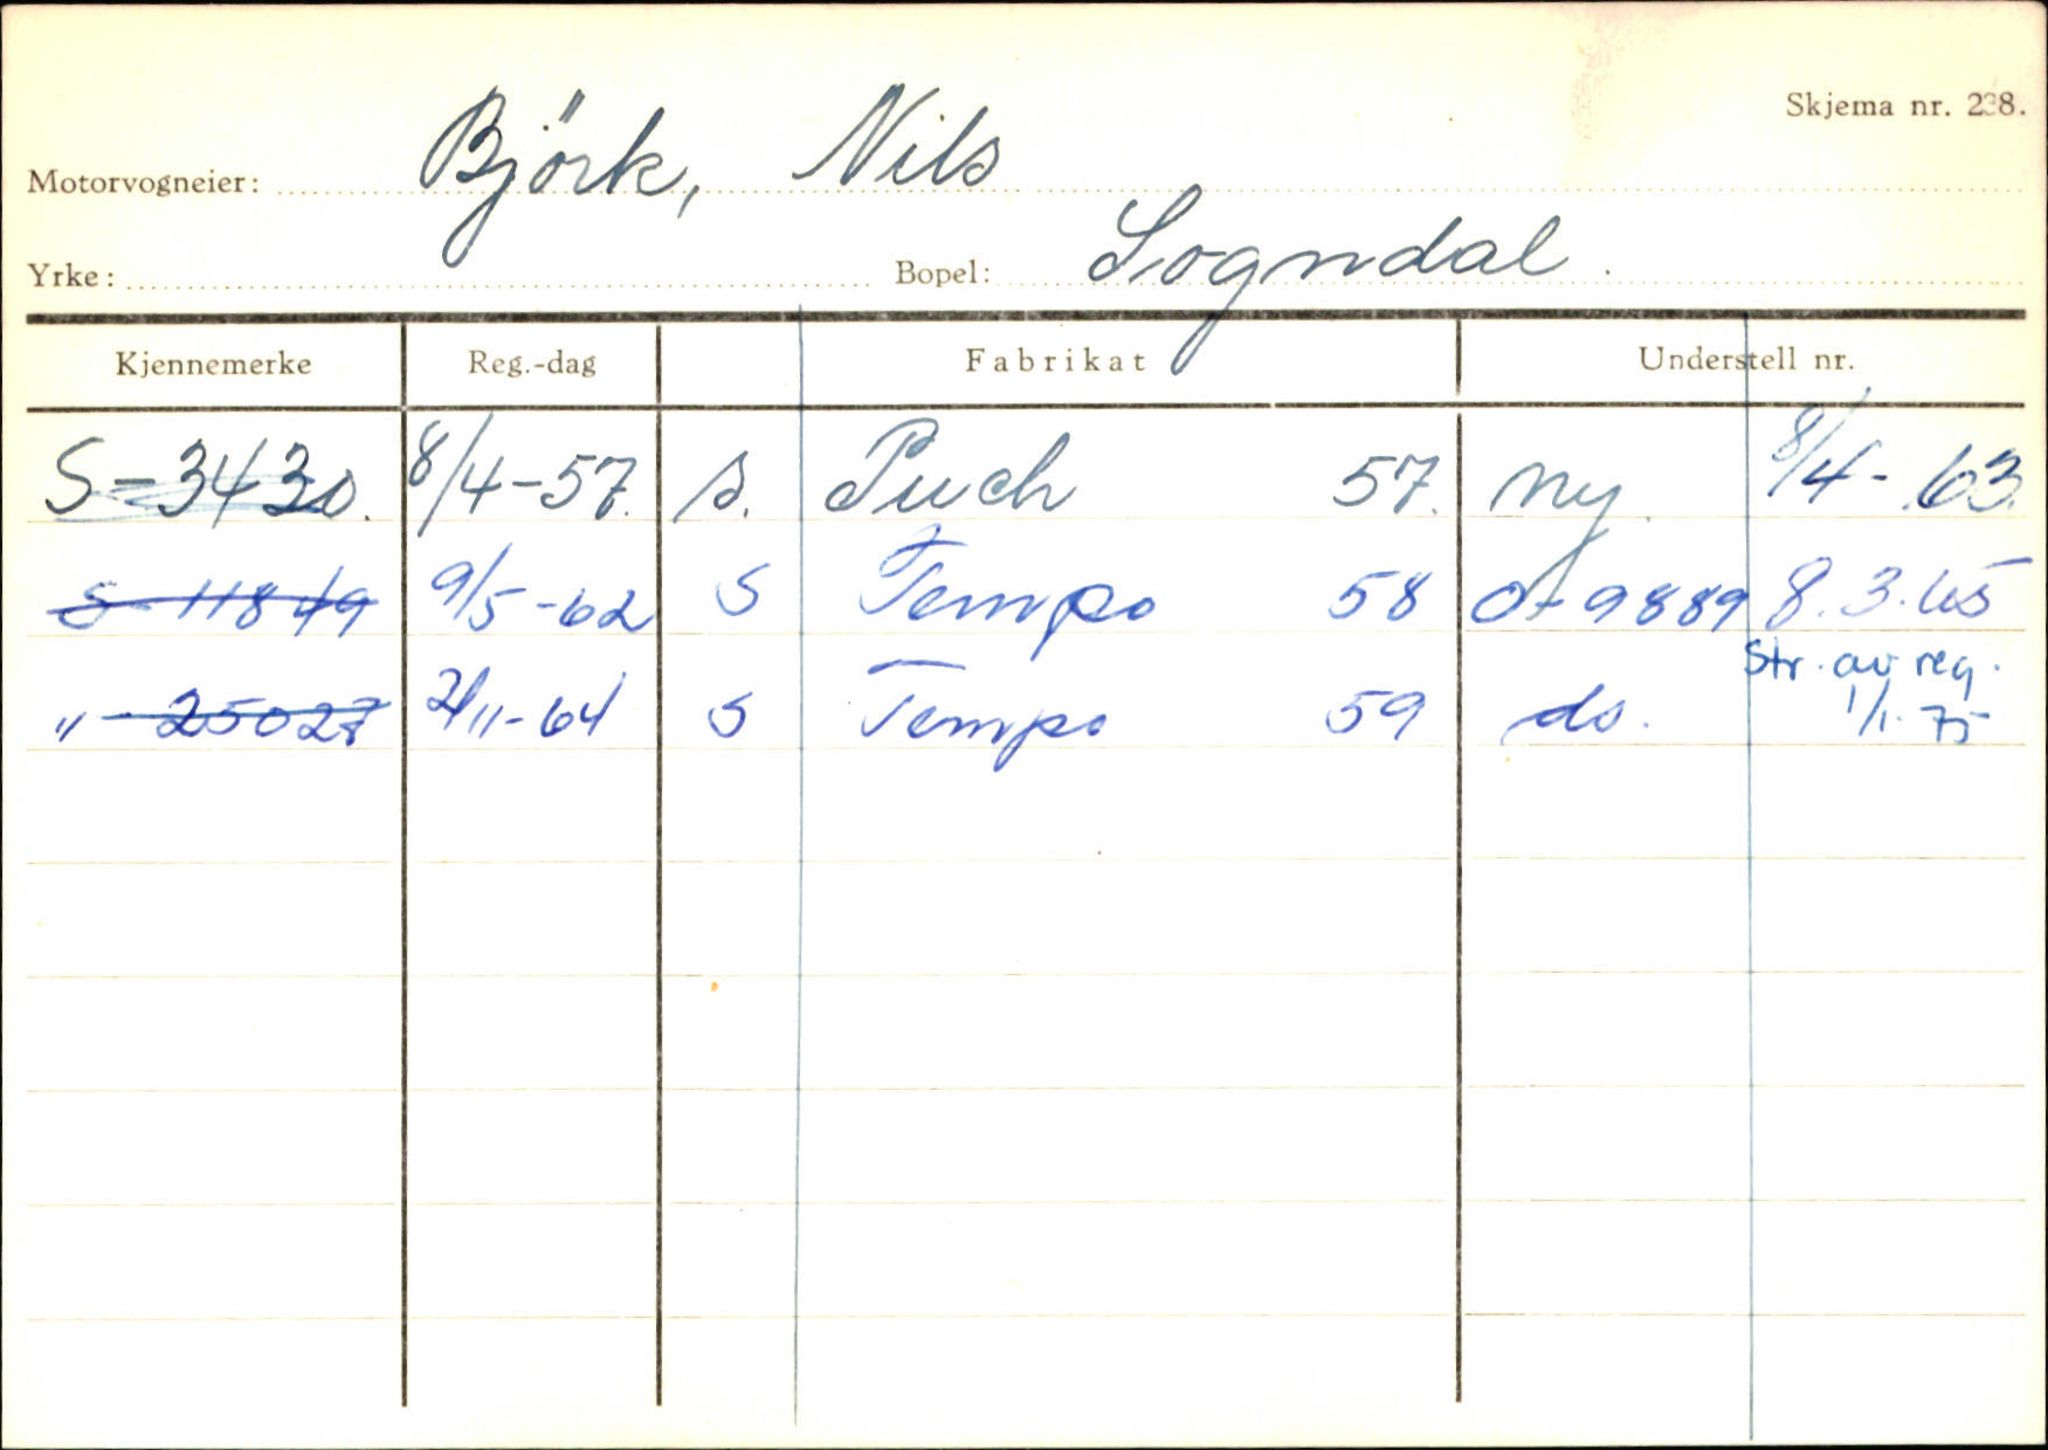 Skjema nr. 238.
Motorvogneier: Björk, Nils
Yrke: Bopel: Sogndal.
Kjennemerke Reg.-dag Fabrikat Understell nr.
S-3430. 8/4-57. s. Puch 57. ny. 8/4-63.
S-11849 9/5-62 S Tempo 58 01-9889 8.3.65
"-25027 2/11-64 S Tempo 59 do. Str. av reg. 1/1-75